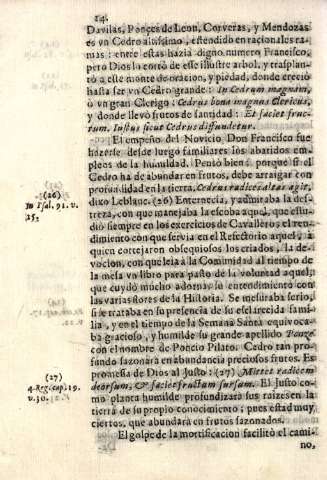 14.
Davilas, Ponçes de Leon, Corveras, y Mendozas
es vn Cedro altissimo, estendido en racionales ra-
mas: entre estas hazia digno numero Francisco,
pero Dios la cortò de esse illustre arbol, y trasplan-
tò a este monte de oracion, y piedad, donde creciò
hasta ser vn Cedro grande: In Cedrum magnam,
ò vn gran Clerigo: Cedrus bona magnus Clericus,
y donde llevò frutos de santidad: Et faciet fruc-
tum. Iustus sicut Cedrus diffundetur.
El empeño del Novicio Don Francisco fue
hazerse desde luego familiares los abatidos em-
pleos de la humildad. Pensò bien: porque si el
Cedro ha de abundar en frutos, debe arraigar con
profundidad en la tierra. Cedrus radices altas agit,
dixo Leblanc. (26) Enternecia, y admiraba la des-
treza, con que manejaba la escoba aquel, que estu-
diò siempre en los exercicios de Cavallero; el ren-
dimiento con que servia en el Refectorio aquel, à
quien cortejaron obsequiosos los criados; la de-
vocion, con que leìa à la Comunidad al tiempo de
la mesa vn libro para pasto de la voluntad aquel,
que cuydò mucho adornar su entendimiento con
las varias flores de la Historia. Se mesuraba serio,
si se trataba en su presencia de su esclarecida fami-
lia, y en el tiempo de la Semana Santa equivoca-
ba gracioso, y humilde su grande apellido Ponçe
con el nombre de Poncio Pilato. Cedro tan pro-
fundo sazonarà en abundancia preciosos frutos. Es
promesa de Dios al Justo: (27) Mittet radicem
deorsum, & faciet fructum sursum. El Justo co-
mo planta humilde profundizarà sus raizes en la
tierra de su propio conocimiento; pues estad muy
ciertos, que abundarà en frutos sazonados.
El golpe de la mortificacion facilitò el cami-
no,
(26)
In Psal. 91. v.
(27)
4. Reg. cap. 19.
v. 30.